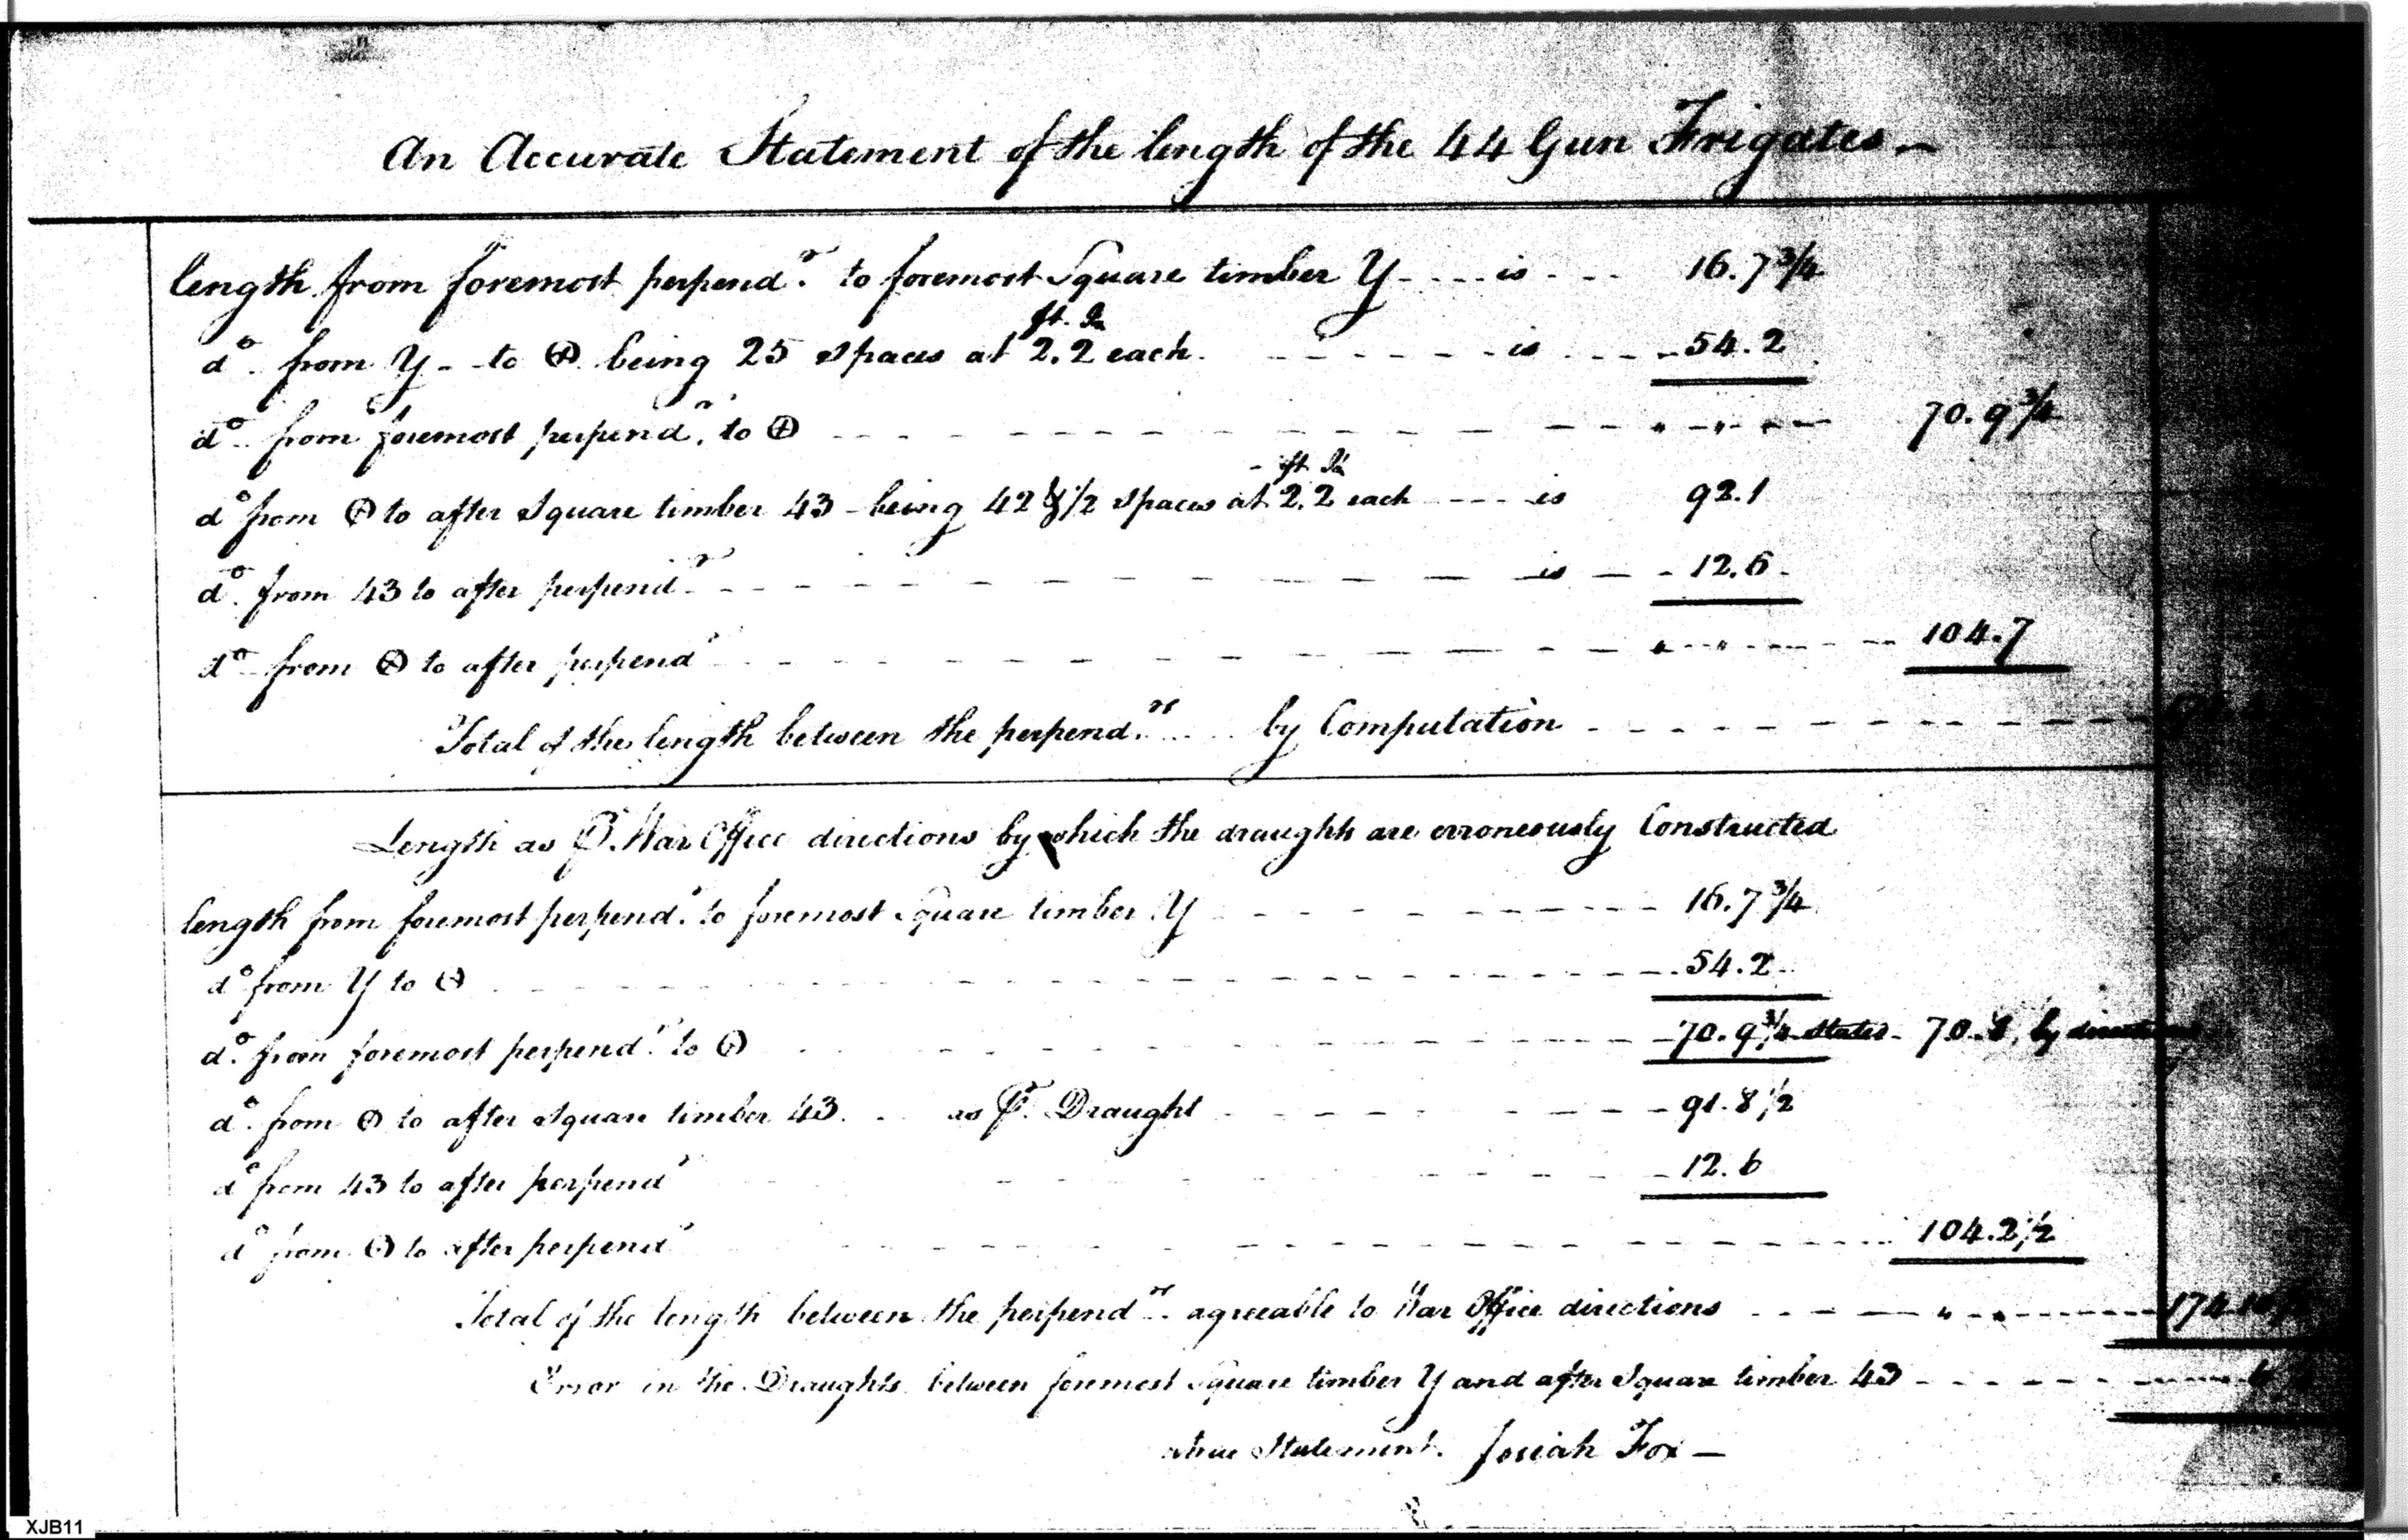 An Accurate Statement of the length of the 44 Gun Frigates —
length from foremost perpendr. to foremost Square timber Y - - - is - - - 16.7 3/4
ft. In
do. from Y - to ⊕ being 25 Spaces at 2.2 each. - - - - - - is - - - - 54.2
do. from foremost perpendr. to ⊕ - - - - - - - - - - - - 70.9 3/4
ft. In
do from ⊕ to after Square timber 43 - being 42 1/2 Spaces at 2.2 each - - - is 92.1
do. from 43 to after perpendr - - - - - - - - - is - - 12.6
do from ⊕ to after perpendr - - - - - - - - - - - - 104.7
Total of the length between the perpendrs. by Computation - - - - - - -
Length as ⅌. War Office directions by which the draughts are erroneously Constructed
length from foremost perpendr. to foremost Square timber Y - - - - - - - - 16.7 3/4
do from Y to ⊕ - - - - - - - - - - - - 54.2
do. from foremost perpendr. to ⊕ - - - - - - - - 70.9 3/4 States - 70.8, by directions
do. from ⊕ to after Square timber 43. - as ⅌. Draught - - - - - - - 91.8 1/2
do from 43 to after perpendr - - - - - 12.6
do from ⊕ to after perpendr - - - - - - - - - - - 104.2 1/2
Total of the length between the perpendrs. agreeable to War Office directions - - - - - - - 174.10
Error in the Draughts between foremost Square timber Y and after Square timber 43 - - - - - - 6
true Statement. Josiah Fox —
XJB11